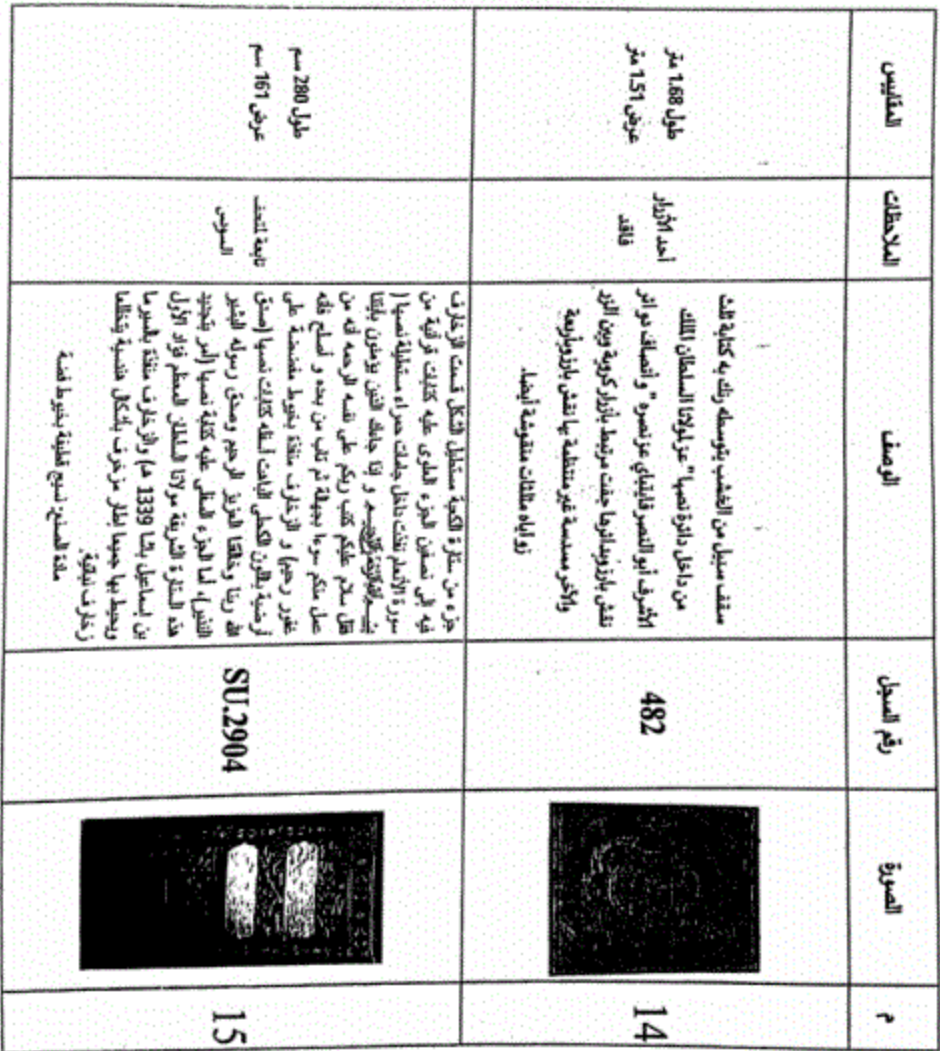 م
الصورة
رقم السجل
الوصف
الملاحظات
المقاييس
14
482
سقف سبيل من الخشب يتوسطه رنك به كتابة ثلث
من داخل دائرة نصها "عز لمولانا السلطان الملك
الأشرف أبو النصر قايتباي عز نصره" وأنصاف دوائر
نقش بارز ويدائرها جفت مرتبط بأزرار كروية وبين الزر
والآخر مسدسة غير منتظمة بها نقش بارز وبأربعة
زواياه مثلثات منقوشة أيضا.
أحد الأزرار
فاقد
طول 1.68 متر
عرض 1.51 متر
15
SU.2904
جزء من ستارة الكعبة مستطيل الشكل قسمت الزخارف
فيه إلى نصفين الجزء العلوى عليه كتابات قرآنية من
سورة الأنعام نفذت داخل جامات حمراء مستطيلة نصها (
و إذا جاءك الذين يؤمنون بآياتنا
فقل سلام عليكم كتب ربكم على نفسه الرحمة أنه من
عمل منكم سوءا بجهالة ثم تاب من بعده و أصلح فأنه
غفور رحيم) و الزخارف منفذة بخيوط مفضضة على
أرضية باللون الكحلى الباهت أسفله كتابات نصها (صدق
الله ربنا وخالقنا العزيز الرحيم وصدق رسوله البشير
النذير)، أما الجزء السفلى عليه كتابة نصها (أمر بتجديد
هذه الستارة الشريفة مولانا السلطان المعظم فؤاد الأول
بن إسماعيل باشا 1339 هـ) والزخارف منفذة بالسيرما
ويحيط بها جميعا إطار مزخرف بأشكال هندسية يتخللها
زخارف نباتية.
مادة الصنع: نسيج قطيفة بخيوط فضة
تابعة لمتحف
السويس
طول 280 سم
عرض 161 سم